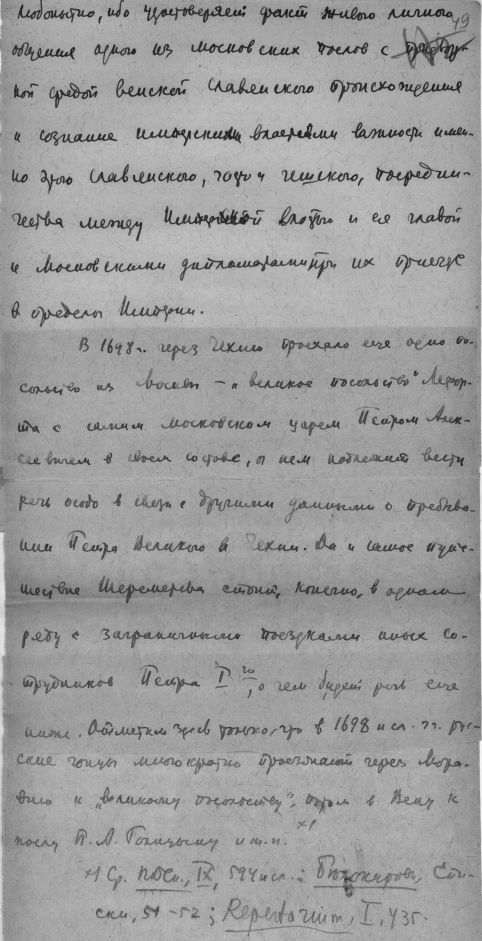 любопытно, ибо удостоверяет факт живого личного 49
общения одного из московских послов с придвор-
ной средой венской славенского происхождения
и сознание имперскими властями важности имен-
но этого славенского, чешского, посредни-
чества между Имперской властью и ее главой
и московскими дипломатами при их приезде
в пределы Империи.
В 1698 г. через Чехию проехало еще одно по-
сольство из Москвы – „великое посольство" Лефор-
та с самим московским царем Петром Алек-
сеевичем в своем составе, о нем надлежит вести
речь особо в связи с другими данными о пребыва-
нии Петра Великого в Чехии. Да и самое путе-
шествие Шереметева стоит, конечно, в одном
ряду с заграничными поездками иных со-
трудников Петра I го, о чем будет речь еще
ниже. Отметим здесь только, что в 1698 и сл. гг. рус-
ские гонцы многократно проезжают через Мора-
вию к „великому посольству", потом в Вену к
послу П. А. Голицыну и т. п. х)
х) Ср. ПДСн., IX, 594 и сл.; Спи-
ски, 51-52; Repertorium, I, 435.